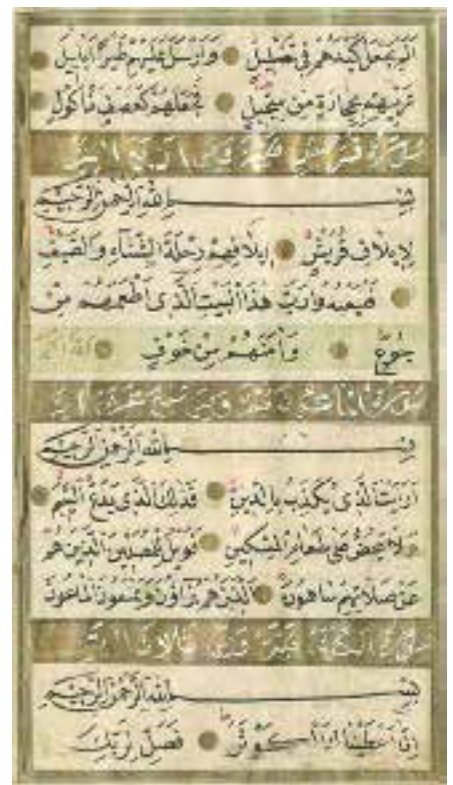 اَلَمْ يَجْعَلْ كَيْدَهُمْ فِى تَضْلِيلٍ وَاَرْسَلَ عَلَيْهِمْ طَيْرًا اَبَابِيلَ
تَرْمِيهِمْ بِحِجَارَةٍ مِنْ سِجِّيلٍ فَجَعَلَهُمْ كَعَصْفٍ مَأْكُولٍ
سورة قريش
بِسْمِ اللهِ الرَّحْمٰنِ الرَّحِيمِ
لِاِيلَافِ قُرَيْشٍ اِيلَافِهِمْ رِحْلَةَ الشِّتَاءِ وَالصَّيْفِ
فَلْيَعْبُدُوا رَبَّ هٰذَا الْبَيْتِ الَّذِى اَطْعَمَهُمْ مِنْ
جُوعٍ وَاٰمَنَهُمْ مِنْ خَوْفٍ
سورة
بِسْمِ اللهِ الرَّحْمٰنِ الرَّحِيمِ
اَرَاَيْتَ الَّذِى يُكَذِّبُ بِالدِّينِ فَذٰلِكَ الَّذِى يَدُعُّ الْيَتِيمَ
وَلَا يَحُضُّ عَلٰى طَعَامِ الْمِسْكِينِ فَوَيْلٌ لِلْمُصَلِّينَ الَّذِينَ هُمْ
عَنْ صَلَاتِهِمْ سَاهُونَ الَّذِينَ هُمْ يُرَاؤُنَ وَيَمْنَعُونَ الْمَاعُونَ
سورة
بِسْمِ اللهِ الرَّحْمٰنِ الرَّحِيمِ
اِنَّا اَعْطَيْنَاكَ الْكَوْثَرَ فَصَلِّ لِرَبِّكَ